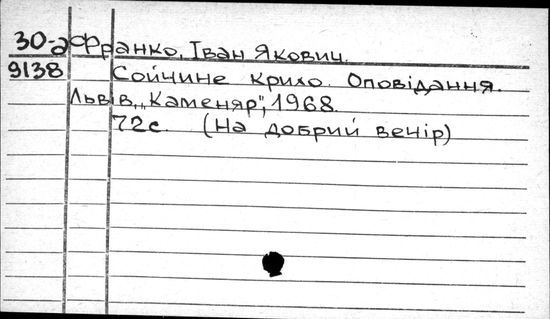 30-д Франко, Іван Якович.
9138 Сойчине крило. Оповідання.
Львів, „Каменяр", 1968.
72с. (На добрий вечір)